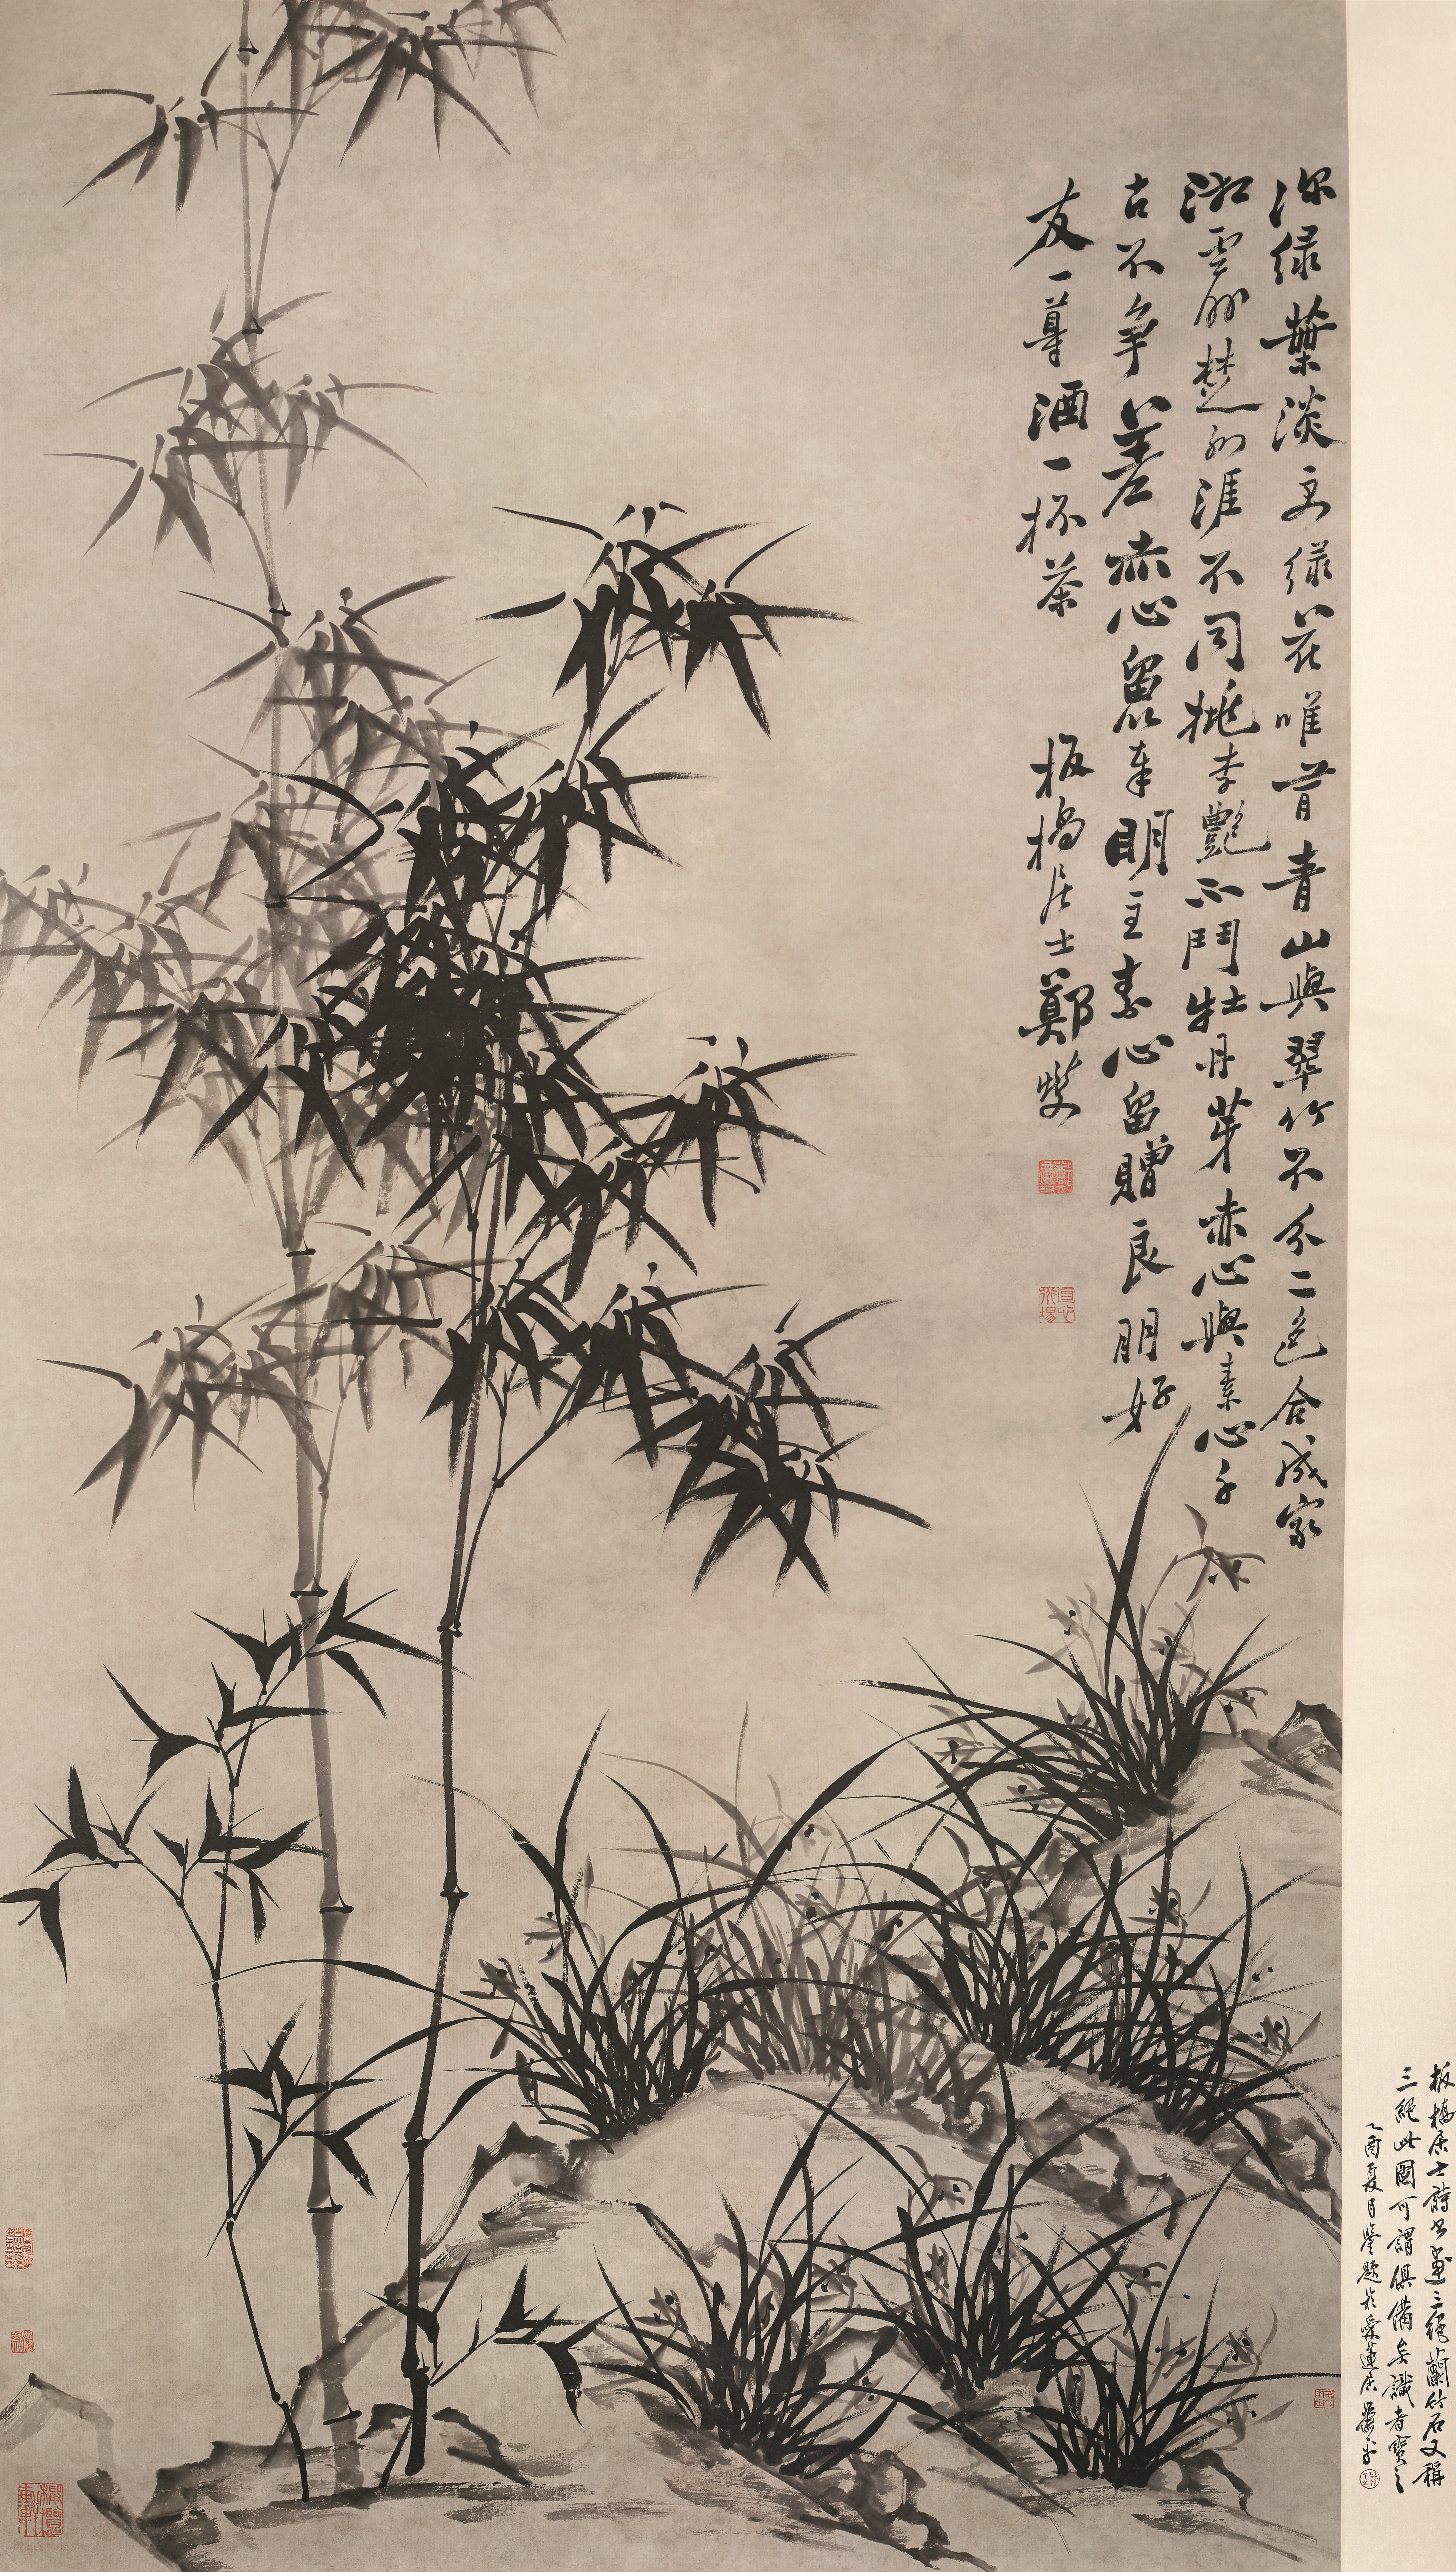 深绿葉淡文绿花唯昔青山與翠竹不分二色合成家
湘雲㸃楚雨涯不同桃李艷不鬥牡丹芽赤心與素心千
古不争差赤心畱奉明主素心留贈良朋好
友一尊酒一杯茶
板橋居士鄭燮
板橋居士詩書畫三絕蘭竹石又稱
三絕此圖可謂俱備矣識者寶之
乙酉夏月